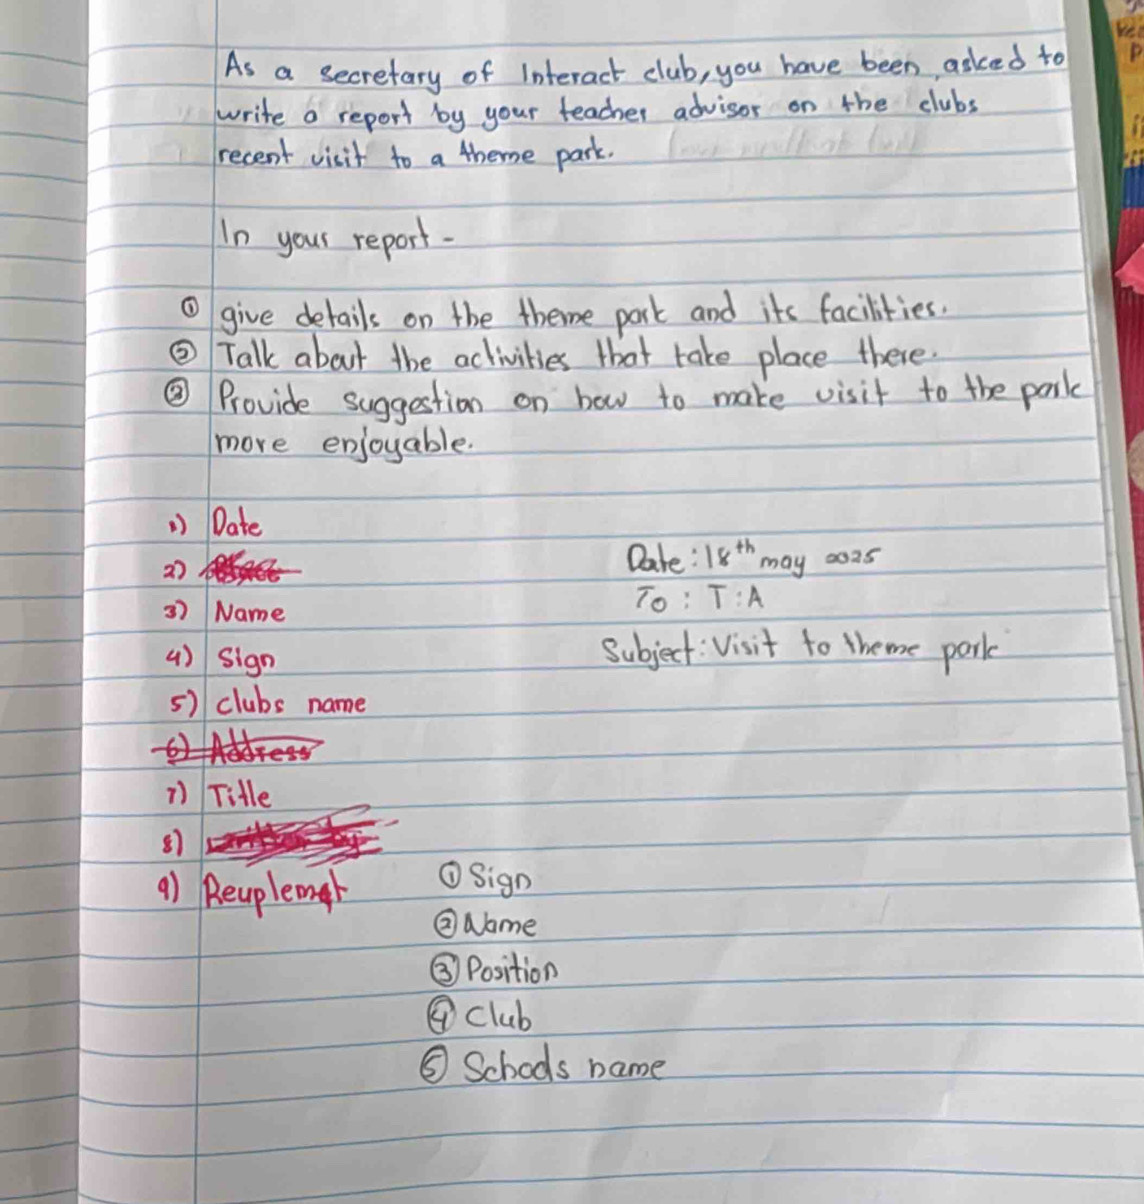 As a secretary of Interact club, you have been asked to
write a report by your teacher advisor on the clubs
recent visit to a theme park.
In your report -
① give details on the theme park and its facilities.
② Talk about the activities that take place there.
③ Provide suggestion on how to make visit to the park
more enjoyable.
1) Date
2)
3) Name
4) Sign
5) clubs name
6) Address
7) Title
8)
9)
Date : 18th may 2025
To : T : A
Subject : Visit to theme park
① Sign
② Name
③ Position
④ Club
⑤ Schools name